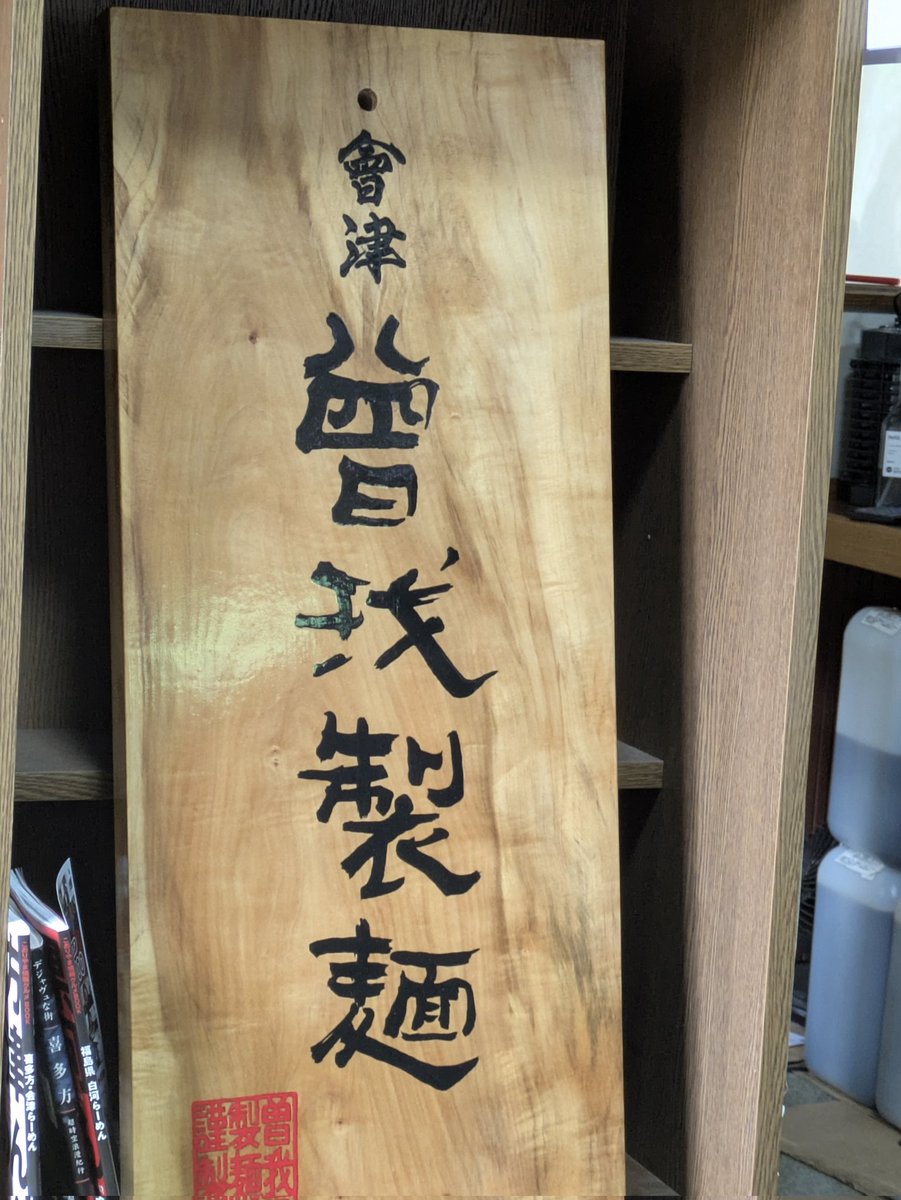 會津
曽我製麺
曽我
製麺
謹製
喜多方・会津らーめん
デジャヴュな街
喜多方
超時空浪漫紀行
福島県 白河らーめん